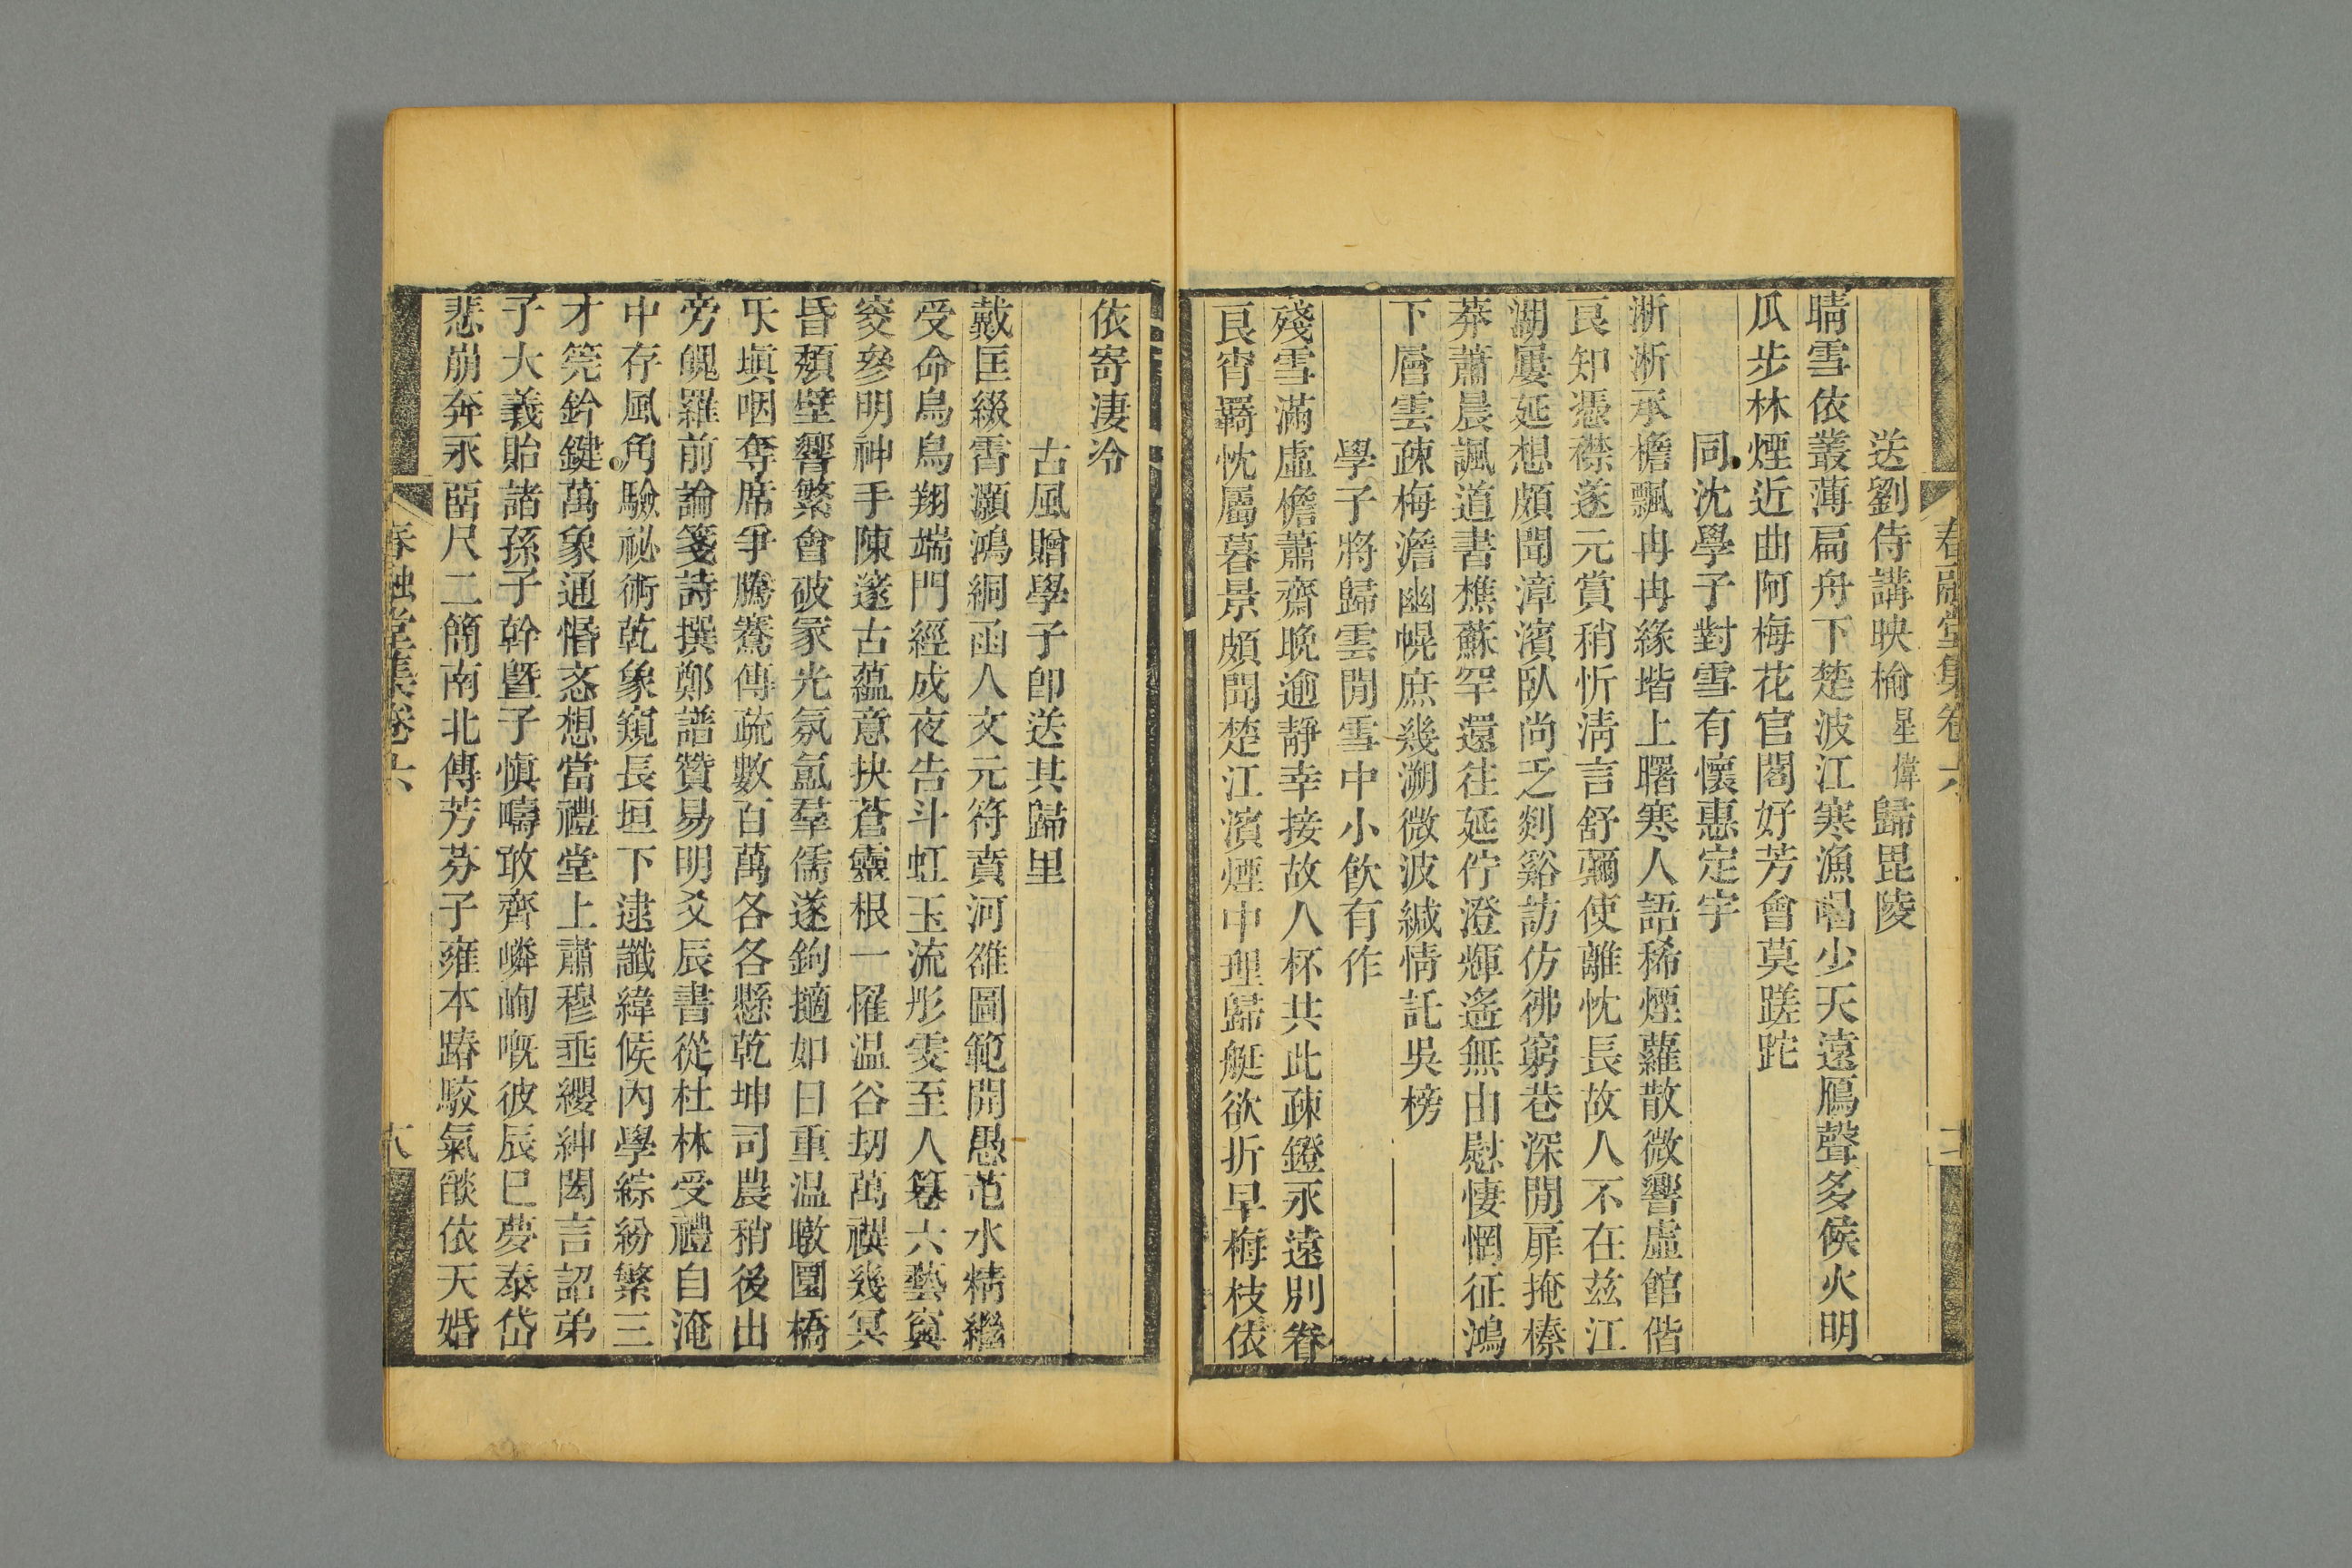 春融堂集卷六
送劉侍講映榆星煒歸毘陵
晴雪依叢薄扁舟下楚波江寒漁唱少天遠鴈聲多候火明
瓜步林煙近曲阿梅花官閣好芳會莫蹉跎
同沈學子對雪有懷惠定宇
淅淅承檐飄冉冉緣堦上曙寒人語稀煙蘿散微響虛館偕
良知憑襟遂元賞稍忻淸言舒彌使離忱長故人不在兹江
湖屢延想頗聞漳濱臥尚乏剡谿訪仿彿窮巷深閒扉掩榛
莽蕭晨諷道書樵蘇罕還往延佇澄輝遙無由慰悽惘征鴻
下層雲疎梅澹幽幌庶幾溯微波緘情託吳榜
學子將歸雲閒雪中小飮有作
殘雪滿虛檐蕭齋晚逾靜幸接故人杯共此疎鐙永遠別眷
良宵羇忱屬暮景頗聞楚江濱煙中理歸艇欲折早梅枝依
依寄淒冷
古風贈學子卽送其歸里
戴匡級霄灝鴻絅函人文元符賁河雒圖範開愚芚水精繼
受命烏烏翔端門經成夜告斗虹玉流彤雯至人纂六藝窔
窔參明神手陳邃古蘊意抉蒼靈根一罹温谷劫萬禩幾冥
昏頹壁響繁會破冢光氛氳羣儒遂鉤擿如日重温暾圜橋
天塡咽奪席爭騰騫傳疏數百萬各各懸乾坤司農稍後出
旁魄羅前論箋詩撰鄭譜贊易明爻辰書從杜林受禮自淹
中存風角驗祕術乾象窺長垣下逮讖緯候內學綜紛繁三
才筦鈐鍵萬象通惛忞想當禮堂上肅穆垂纓紳閎言詔弟
子大義貽諸孫子幹曁子愼疇敢齊嶙峋嘅彼辰巳夢泰岱
悲崩奔永䛐尺二簡南北傳芳芬子雍本踳駮氣燄依天婚
春融堂集卷六
六